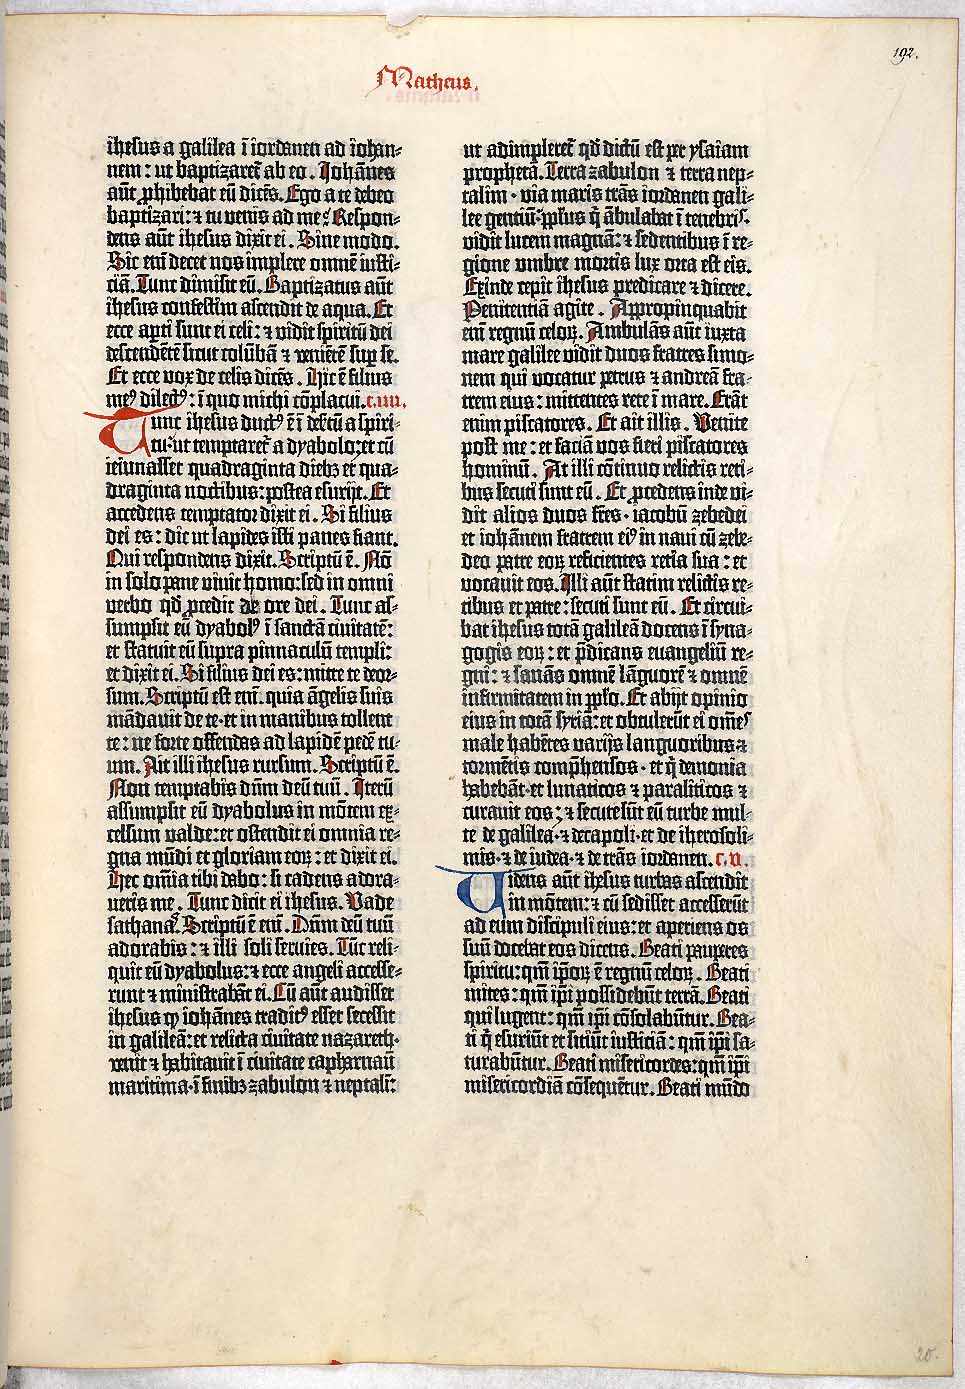 192.
Matheus.
ihesus a galilea ī iordanen ad iohan-
nem: ut baptizaret̄ ab eo. Johānes
aūt ꝓhibebat eū dicēs. Ego a te debeo
baptizari: ⁊ tu venis ad me? Respon-
dens aūt ihesus dixit ei. Sine modo.
Sic em̄ decet nos implere omnē iusti-
ciā. Tunc dimisit eū. Baptizatus aūt
ihesus confestim ascendit de aqua. Et
ecce apti sunt ei celi: ⁊ vidit spiritū dei
descendētē sicut colūbā ⁊ veniētē suꝑ se.
Et ecce vox de celis dicēs. Hic ē filius
meꝰ dilectꝰ: ī quo michi cōplacui. c. iiii.
Tunc ihesus ductꝰ ē ī desertū a spiri-
tu: ut temptaret̄ a dyabolo: et cū
ieiunasset quadraginta diebꝫ et qua-
draginta noctibus: postea esurijt. Et
accedens temptator dixit ei. Si filius
dei es: dic ut lapides isti panes fiant.
Qui respondens dixit. Scriptū ē. Nō
in solo pane vivit homo: sed in omni
verbo qd̄ ꝓcedit de ore dei. Tunc as-
sumpsit eū dyabolꝰ ī sanctā civitatē:
et statuit eū supra pinnaculū templi:
et dixit ei. Si filius dei es: mitte te deor-
sum. Scriptū est em̄. quia āgelis suis
mādavit de te · et in manibus tollent
te: ne forte offendas ad lapidē pedē tu-
um. Ait illi ihesus rursum. Scriptū ē.
Non temptabis dn̄m deū tuū. Iterū
assumpsit eū dyabolus in mōtem ex-
celsum valde: et ostendit ei omnia re-
gna mūdi et gloriam eoꝝ: et dixit ei.
Hec omīa tibi dabo: si cadens adora-
veris me. Tunc dicit ei ihesus. Vade
sathanas. Scriptū ē em̄. Dn̄m deū tuū
adorabis: ⁊ illi soli servies. Tūc reli-
quit eū dyabolus: ⁊ ecce angeli accesse-
runt ⁊ ministrabāt ei. Cū aūt audisset
ihesus ꝙ iohānes traditꝰ esset secessit
in galileā: et relicta civitate nazareth ·
venit ⁊ habitavit ī civitate capharnaū
maritima · ī finibꝫ zabulon ⁊ neptalī:
ut adimpleret̄ qd̄ dictū est per ysaiam
prophetā. Terra zabulon ⁊ terra nep-
talim · via maris trās iordanen gali-
lee gentiū: ppl̄us q̄ ābulabat ī tenebris ·
vidit lucem magnā: ⁊ sedentibus ī re-
gione umbre mortis lux orta est eis.
Exinde cepit ihesus predicare ⁊ dicere.
Penitentiā agite. Appropinquabit
em̄ regnū celoꝝ. Ambulās aūt iuxta
mare galilee vidit duos fratres simo-
nem qui vocatur petrus ⁊ andreā fra-
trem eius: mittentes rete ī mare. Erāt
enim piscatores. Et ait illis. Venite
post me: et faciā vos fieri piscatores
hominū. At illi cōtinuo relictis reti-
bus secuti sunt eū. Et ꝓcedens inde vi-
dit alios duos fr̄es · iacobū zebedei
et iohānem fratrem eiꝰ in navi cū zebe-
deo patre eoꝝ reficientes retia sua: et
vocavit eos. Illi aūt statim relictis re-
tibus et patre: secuti sunt eū. Et circui-
bat ihesus totā galileā docens ī syna-
gogis eoꝝ: et p̄dicans euangeliū re-
gni: ⁊ sanās omnē lāguorē ⁊ omnē
infirmitatem in pplo. Et abijt opinio
eius in totā syriā: et obtulerūt ei om̄es
male habētes varijs languoribus ⁊
tormētis comp̄hensos · et q̄ demonia
habebāt · et lunaticos ⁊ paraliticos ⁊
curavit eos: ⁊ secute sūt eū turbe mul-
te de galilea · ⁊ decapoli · et de iherosoli-
mis · ⁊ de iudea · ⁊ de trās iordanen. c. v.
Videns aūt ihesus turbas ascendit
in mōtem: ⁊ cū sedisset accesserūt
ad eum discipuli eius: et aperiens os
suū docebat eos dicens. Beati pauperes
spiritu: qm̄ ip̄oꝝ ē regnū celoꝝ. Beati
mites: qm̄ ip̄i possidebūt terrā. Beati
qui lugent: qm̄ ip̄i cōsolabūtur. Bea-
ti q̄ esuriūt et sitiūt iusticiā: qm̄ ip̄i sa-
turabūtur. Beati misericordes: qm̄ ip̄i
misericordiā cōsequētur. Beati mūdo
20.